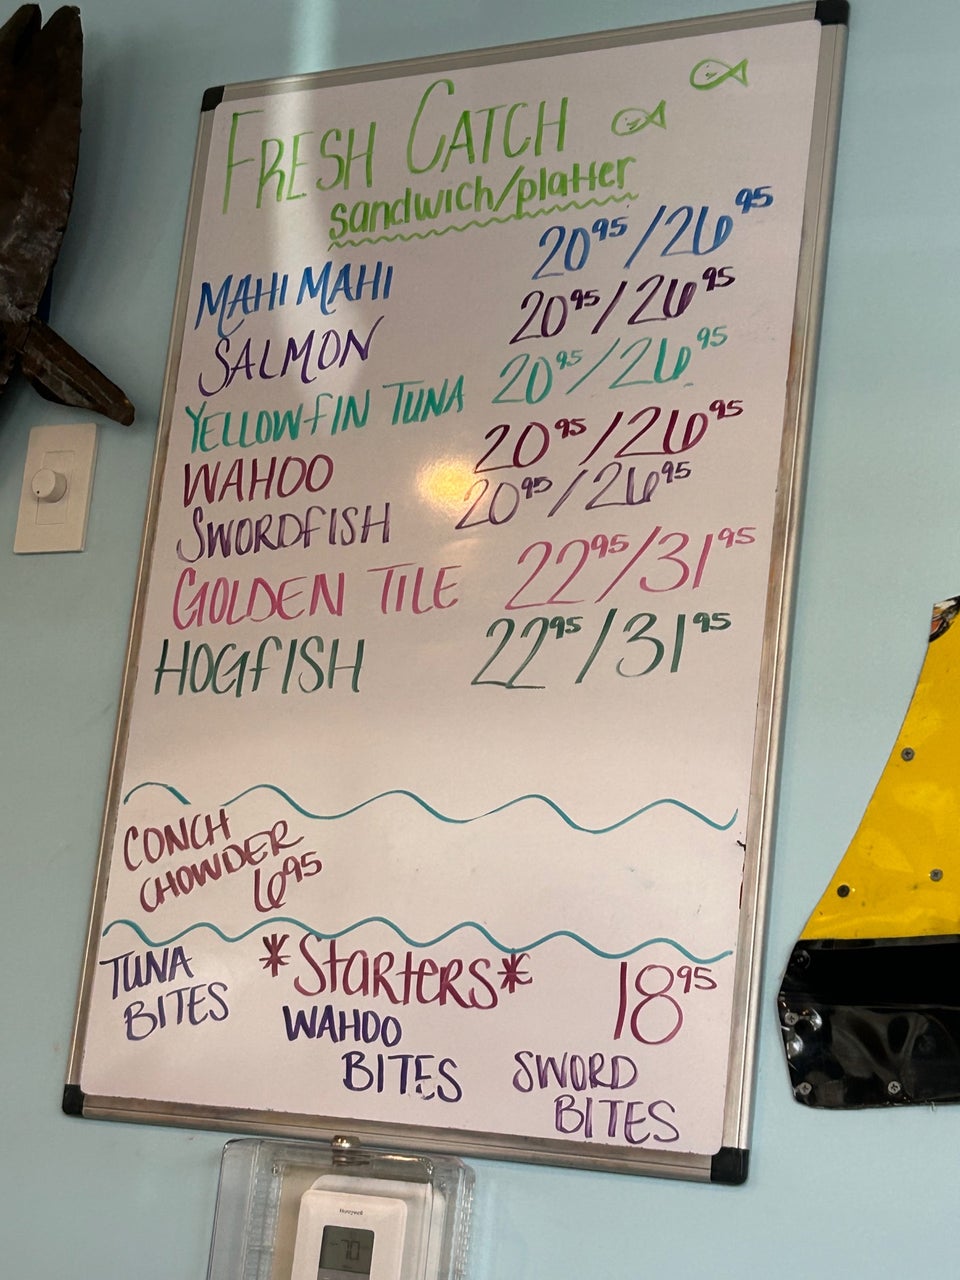 FRESH CATCH
sandwich/platter
MAHI MAHI 20⁹⁵/26⁹⁵
SALMON 20⁹⁵/26⁹⁵
YELLOWFIN TUNA 20⁹⁵/26⁹⁵
WAHOO 20⁹⁵/26⁹⁵
SWORDFISH 20⁹⁵/26⁹⁵
GOLDEN TILE 22⁹⁵/31⁹⁵
HOGFISH 22⁹⁵/31⁹⁵
CONCH
CHOWDER
6⁹⁵
*Starters* 18⁹⁵
TUNA
BITES
WAHOO
BITES
SWORD
BITES
Honeywell
70